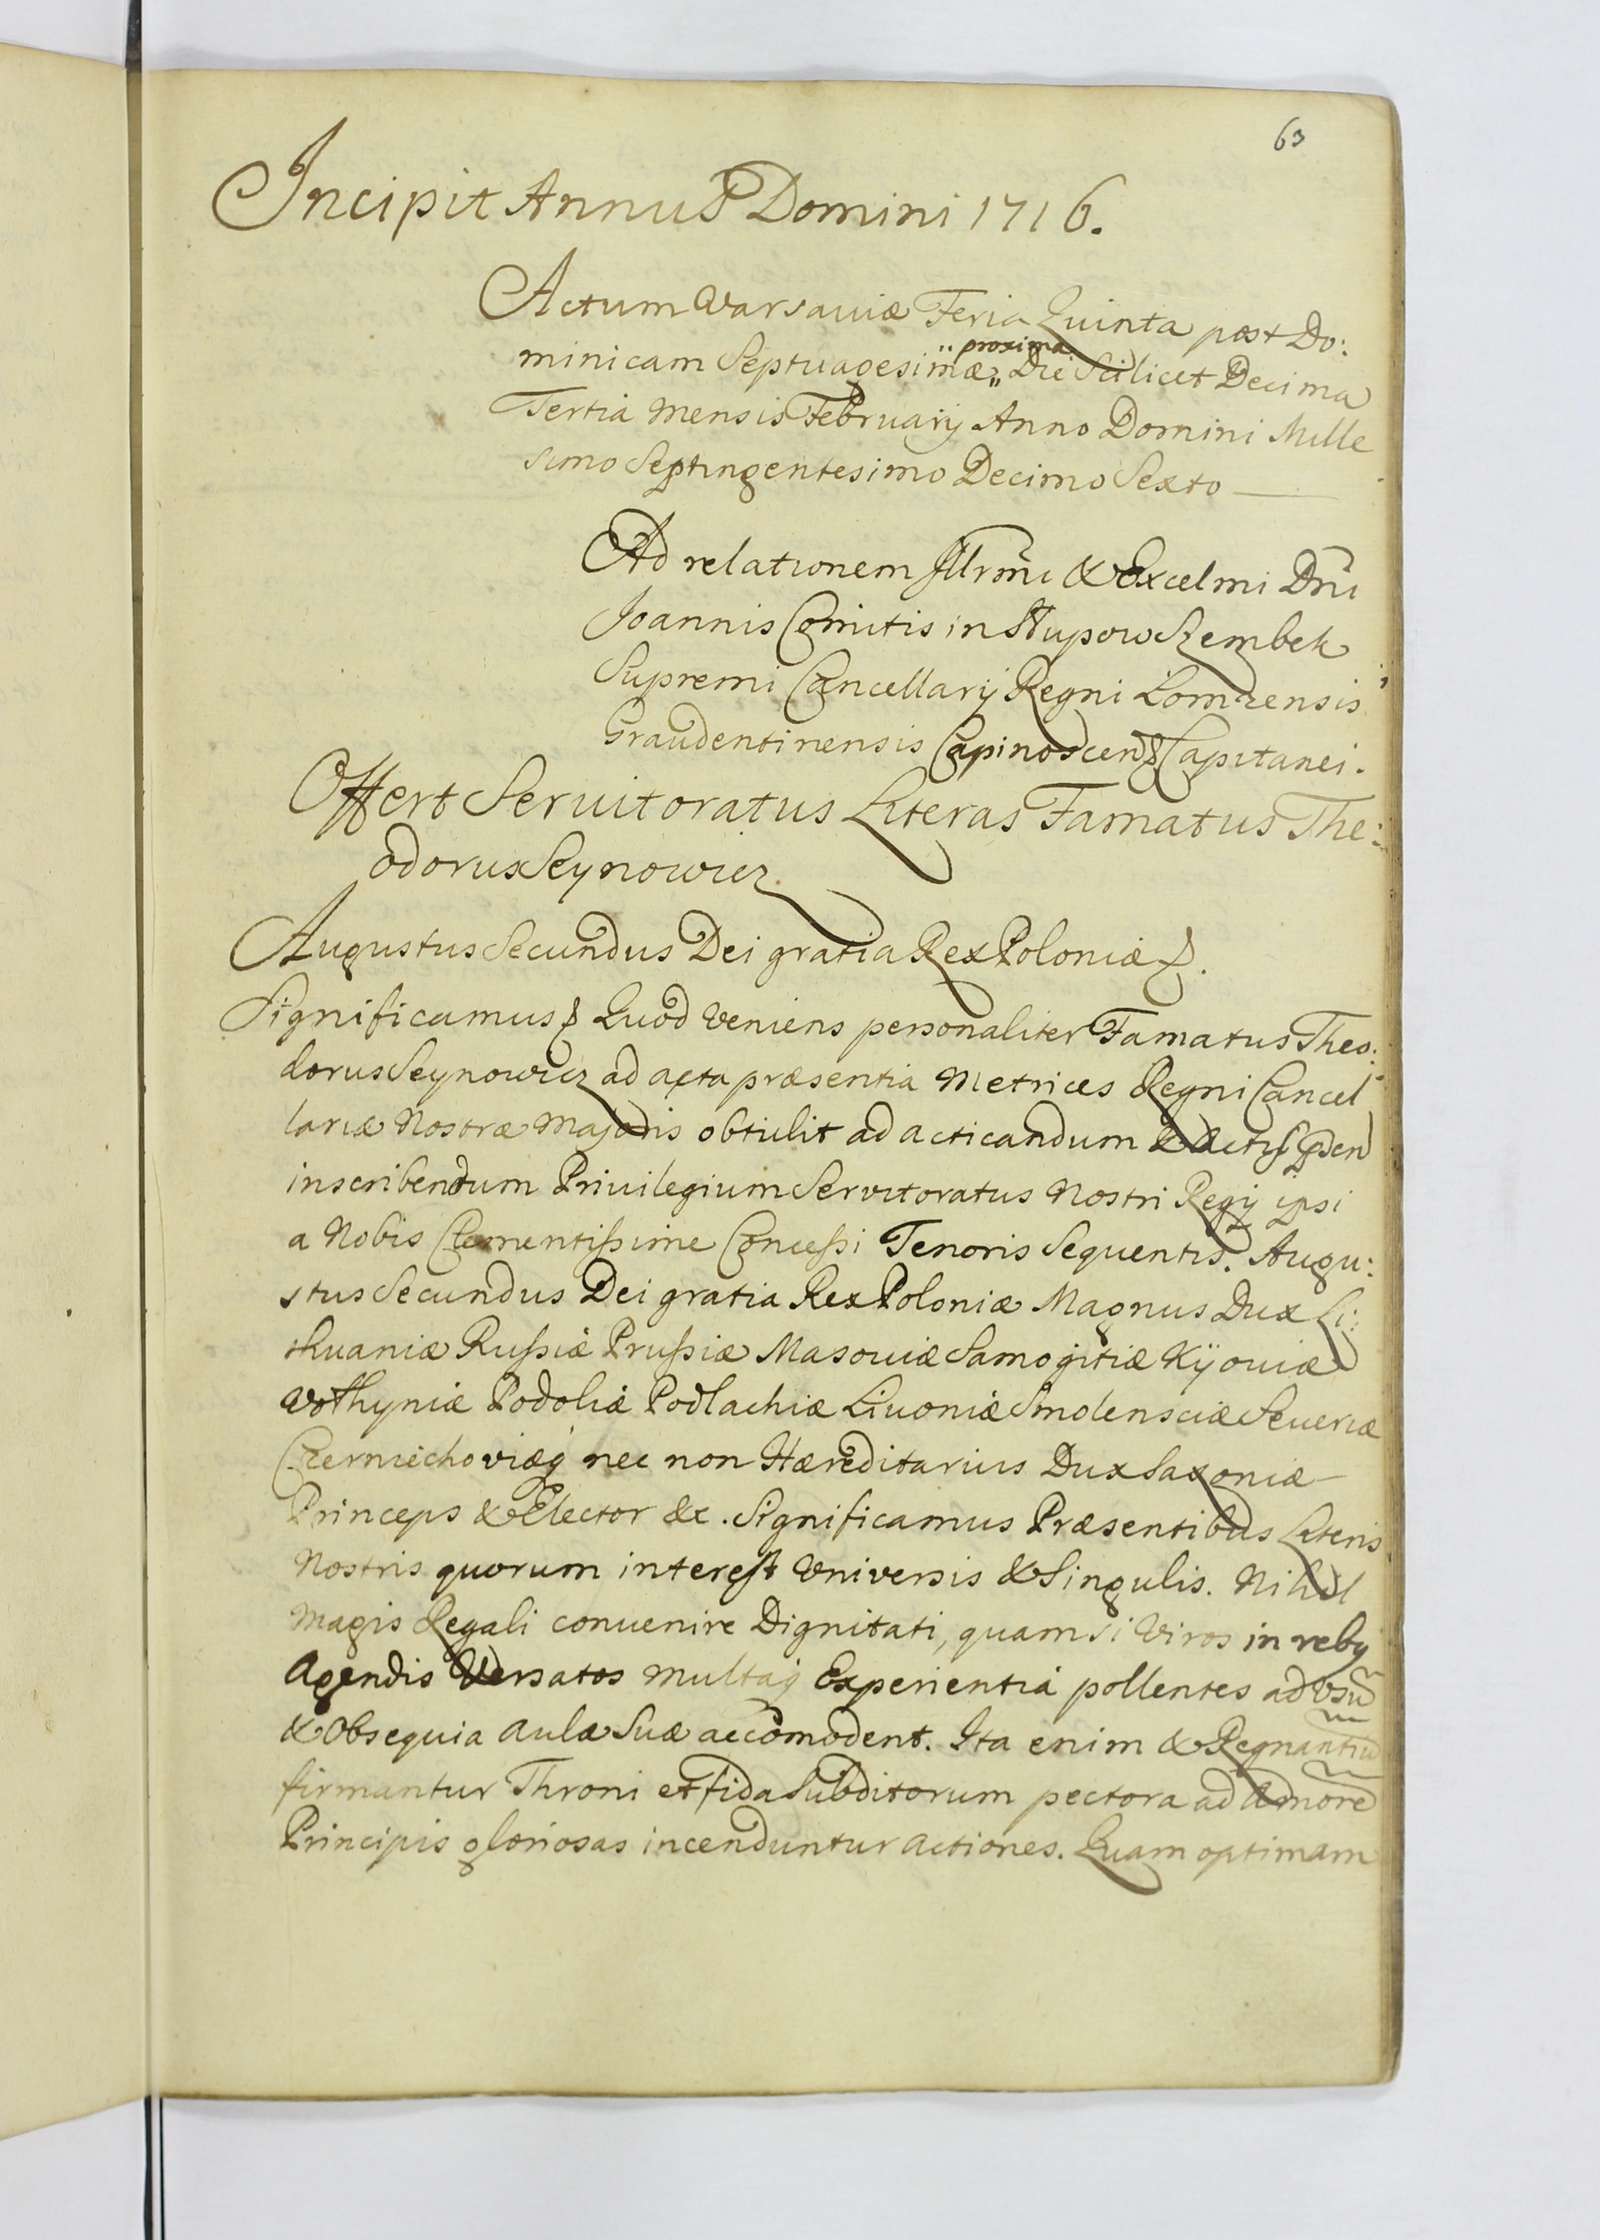 63
Incipit Annus Domini 1716.
Actum Varsaviæ Feria Quinta post Do:
minicam Septuagesimæ proxima Die Scilicet Decima
Tertia Mensis Februarij Anno Domini Mille
simo Septingentesimo Decimo Sexto
Ad relationem Illrmi & Excelmi Dni
Joannis Comitis in Słupow Szembek
Supremi Cancellarij Regni Lomzensis
Graudentinensis Capinoscen & Capitanei.
Offert Servitoratus Literas Famatus The:
odorus Seynowicz
Augustus Secundus Dei gratia Rex Poloniæ &.
Significamus & Quod veniens personaliter Famatus Theo:
dorus Seynowicz ad acta præsentia Metrices Regni Cancel
lariæ Nostræ Majoris obtulit ad acticandum & Actis ijsdem
inscribendum Privilegium Servitoratus Nostri Regij ipsi
a Nobis Clementissime Concessi Tenoris Sequentis. Augu:
stus Secundus Dei gratia Rex Poloniæ Magnus Dux Li:
thuaniæ Russiæ Prussiæ Masoviæ Samogitiæ Kijoviæ
Volhyniæ Podoliæ Podlachiæ Livoniæ Smolensciæ Severiæ
Czerniechoviæq nec non Hæreditarius Dux Saxoniæ
Princeps & Elector &c. Significamus Præsentibus Literis
Nostris quorum interest Universis & Singulis. Nihil
magis Regali convenire Dignitati, quam si Viros in rebq
Agendis Versatos multaq Experientiá pollentes ad Usū
& Obsequia Aulæ Suæ accomodent. Ita enim & Regnantiū
firmantur Throni et fida Subditorum pectora ad Amorē
Principis gloriosas incenduntur actiones. Quam optimam